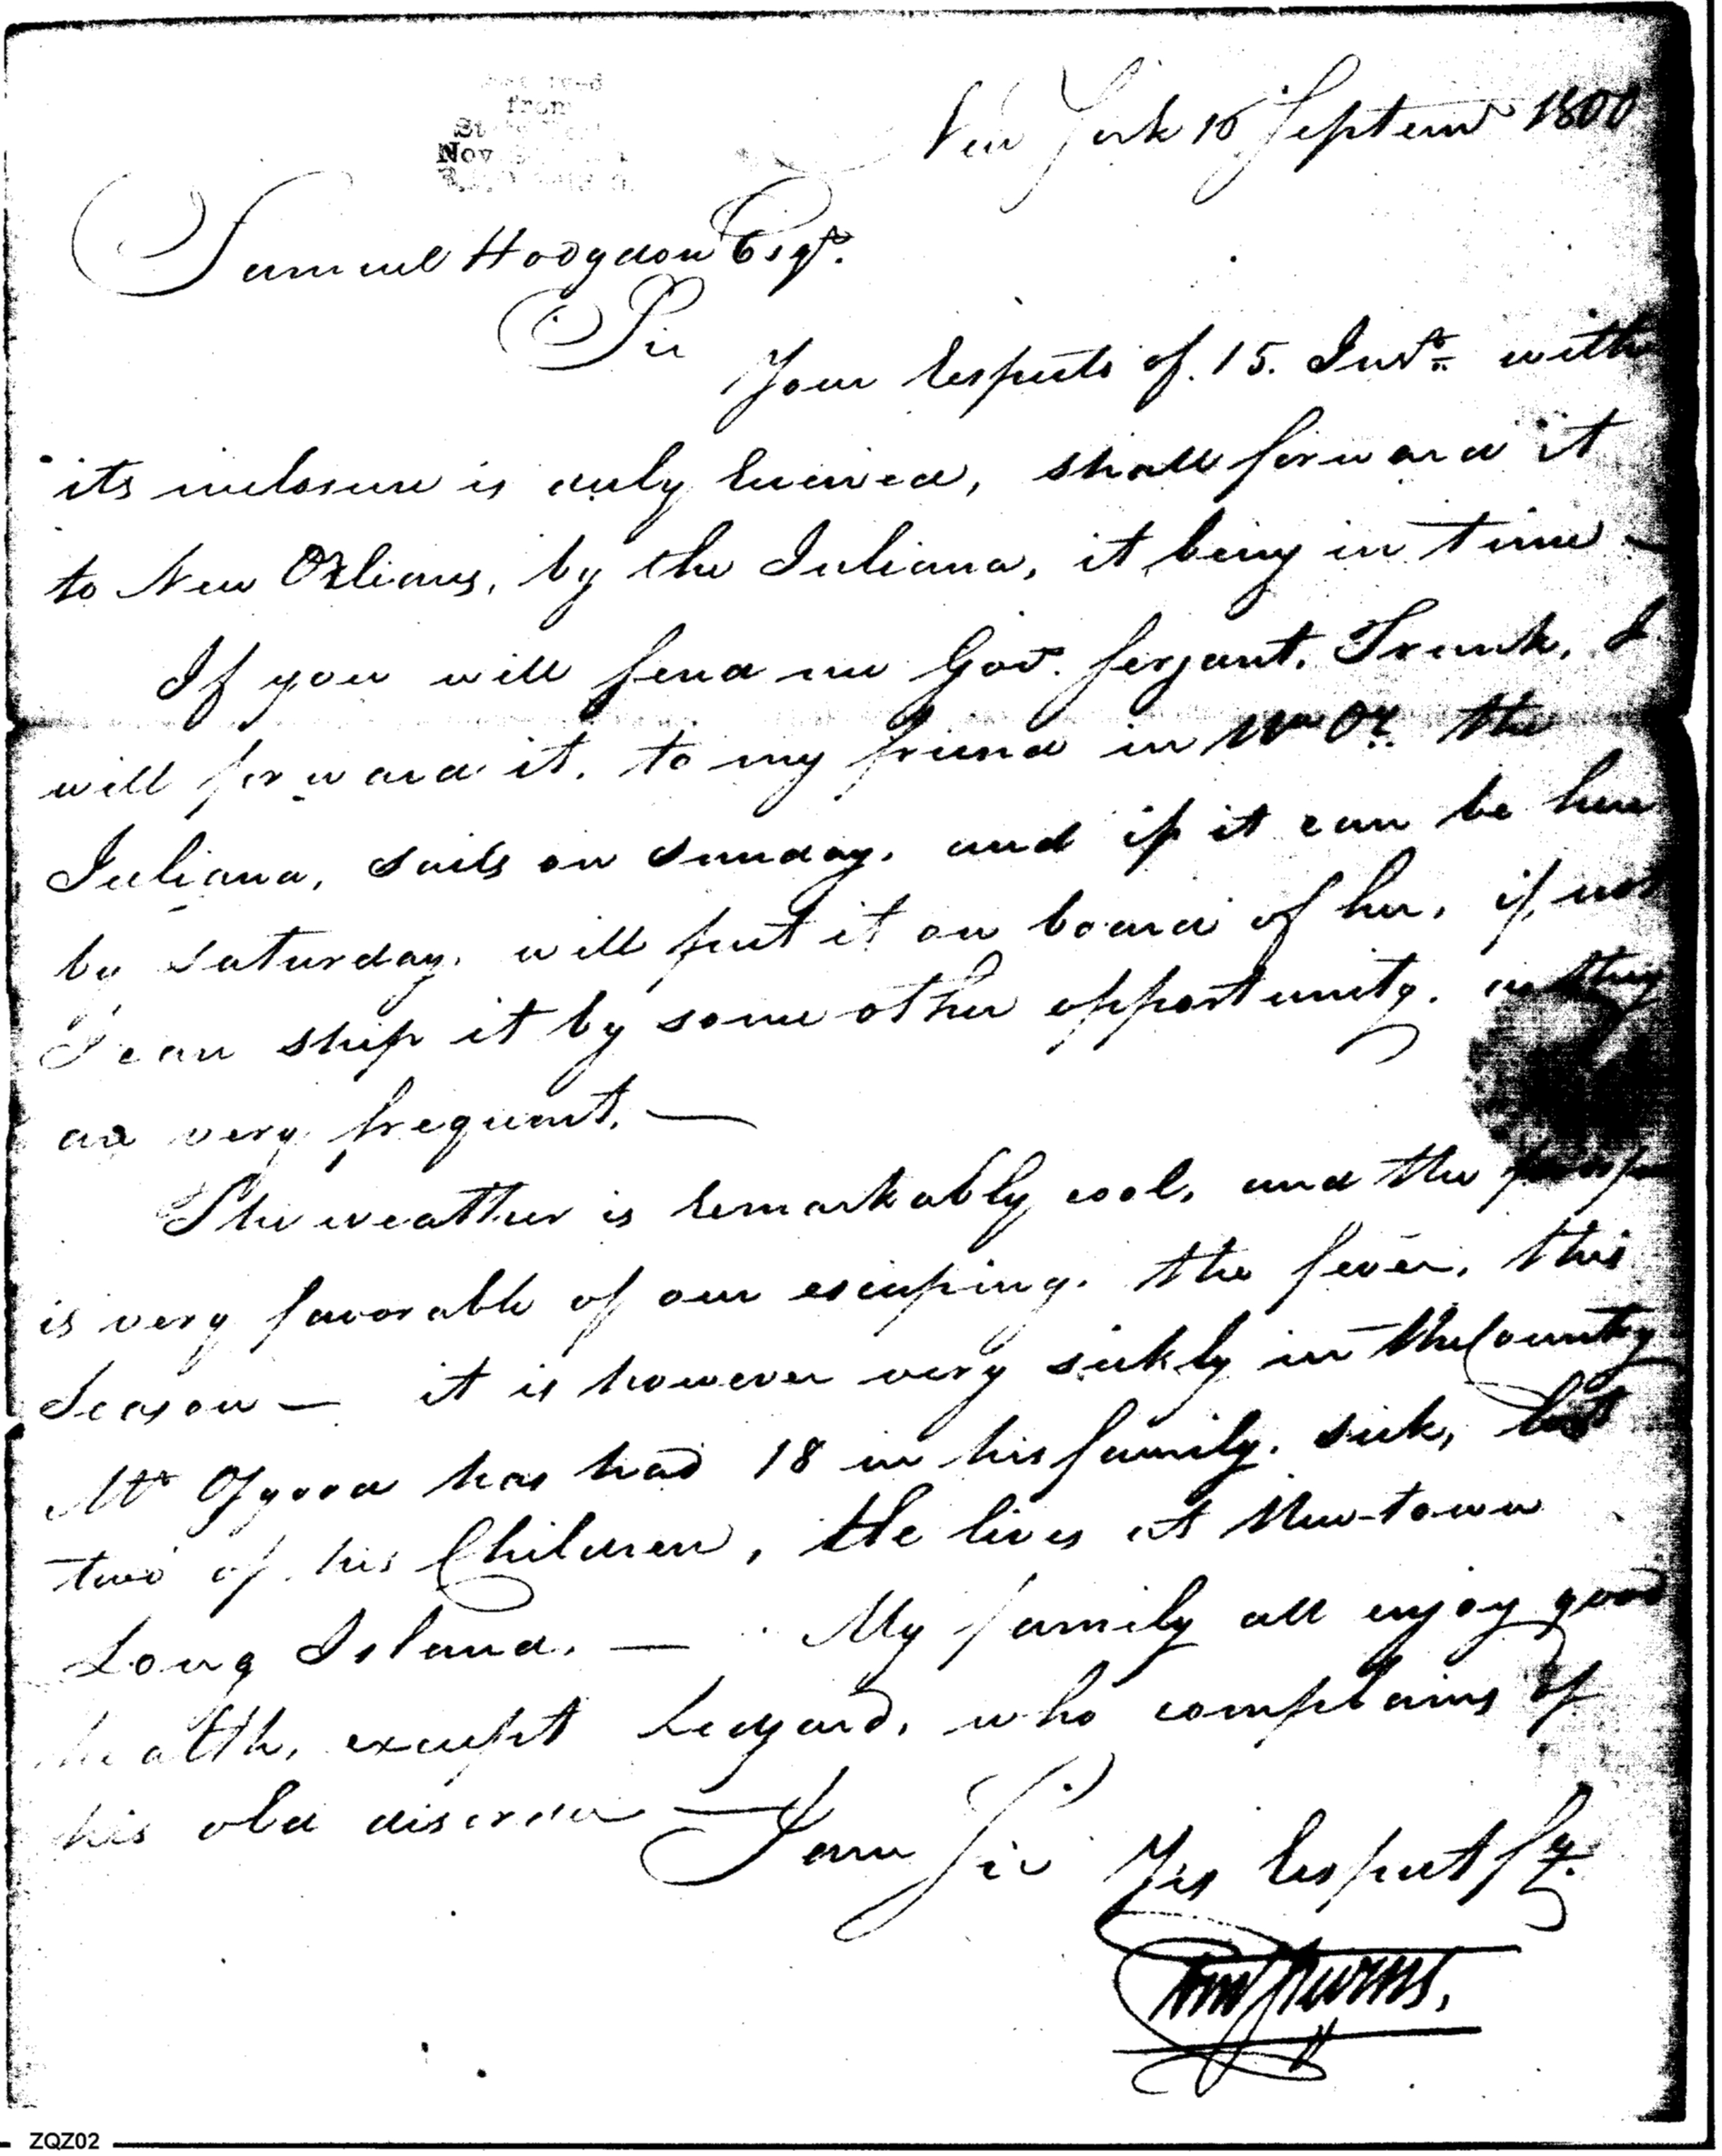 from
Nov
New York 16 Septemr 1800
Samuel Hodgdon Esqr.
Sir
Your respects of. 15. Inst. with
its inclosure is duly received, shall forward it
to New Orlians, by the Juliana, it being in time —
If you will send me Gov. Serjant. Trunk, I
will forward it. to my friend in Nw Or. the
Juliana, sails on Sunday. and if it can be here
by Saturday. will put it on board of her. if, not
I can ship it by some other opportunity. as they
are very frequent. —
The weather is remarkably cool. and the
is very favorable of our escaping. the fever. this
Season — it is however very sickly in the Country
Mr Osgood has had 18 in his family. sick,
two of his Children, He lives at New-town
Long Island. — My family all enjoy good
health, except Ledyard, who complains of
his old disorder — I am Sir Yrs respectfy.
ZQZ02